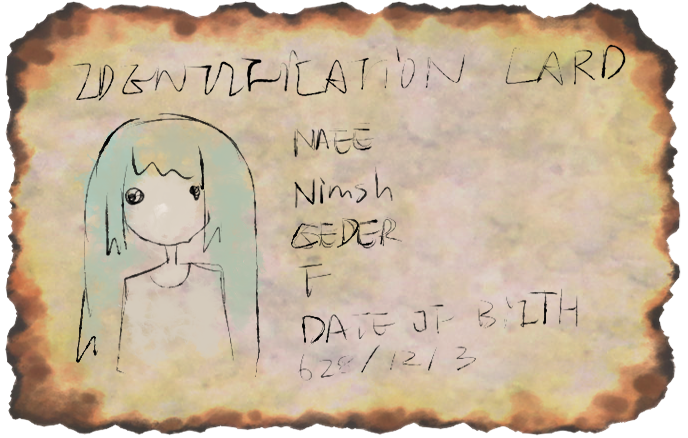 IDENTIFICATION CARD
NAEE
Nimsh
GEDER
F
DATE OF BIRTH
628/12/3